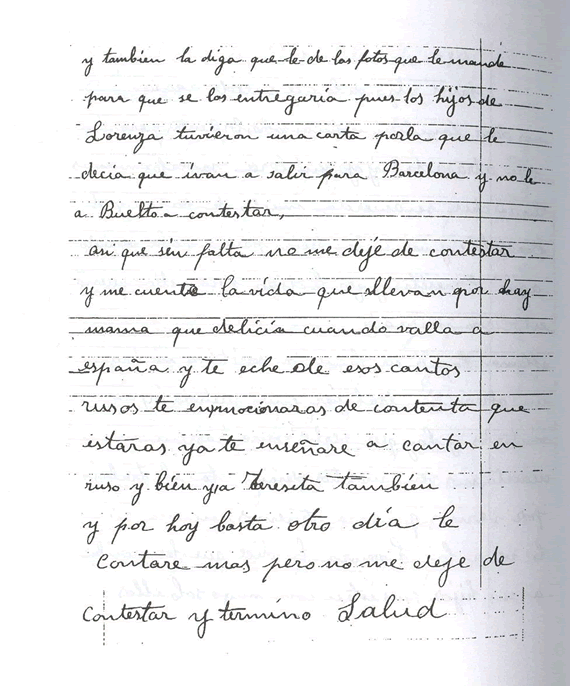 y tambien la diga que le de las fotos que le mande
para que se los entregaria pues los hijos de
Lorenza tuvieron una carta porla que le
decia que ivan a salir para Barcelona y no le
a Buelto a contestar,
asi que sin falta no me deje de contestar
y me cuente la vida que llevan por hay
mama que delicia cuando valla a
españa y te eche ole esos cantos
rusos te enmocionaras de contenta que
estaras ya te enseñare a cantar en
ruso y bien y a Teresita tambien
y por hoy basta otro dia le
Contare mas pero no me deje de
Contestar y termino Salud